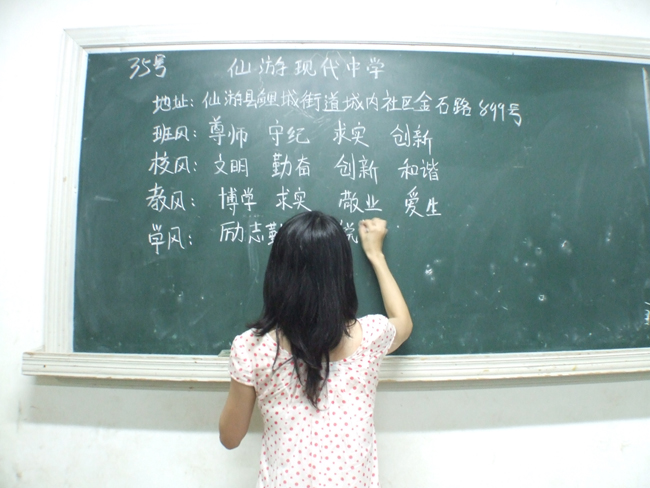 35号 仙游现代中学
地址：仙游县鲤城街道城内社区金石路899号
班风：尊师 守纪 求实 创新
校风：文明 勤奋 创新 和谐
教风：博学 求实 敬业 爱生
学风：励志勤